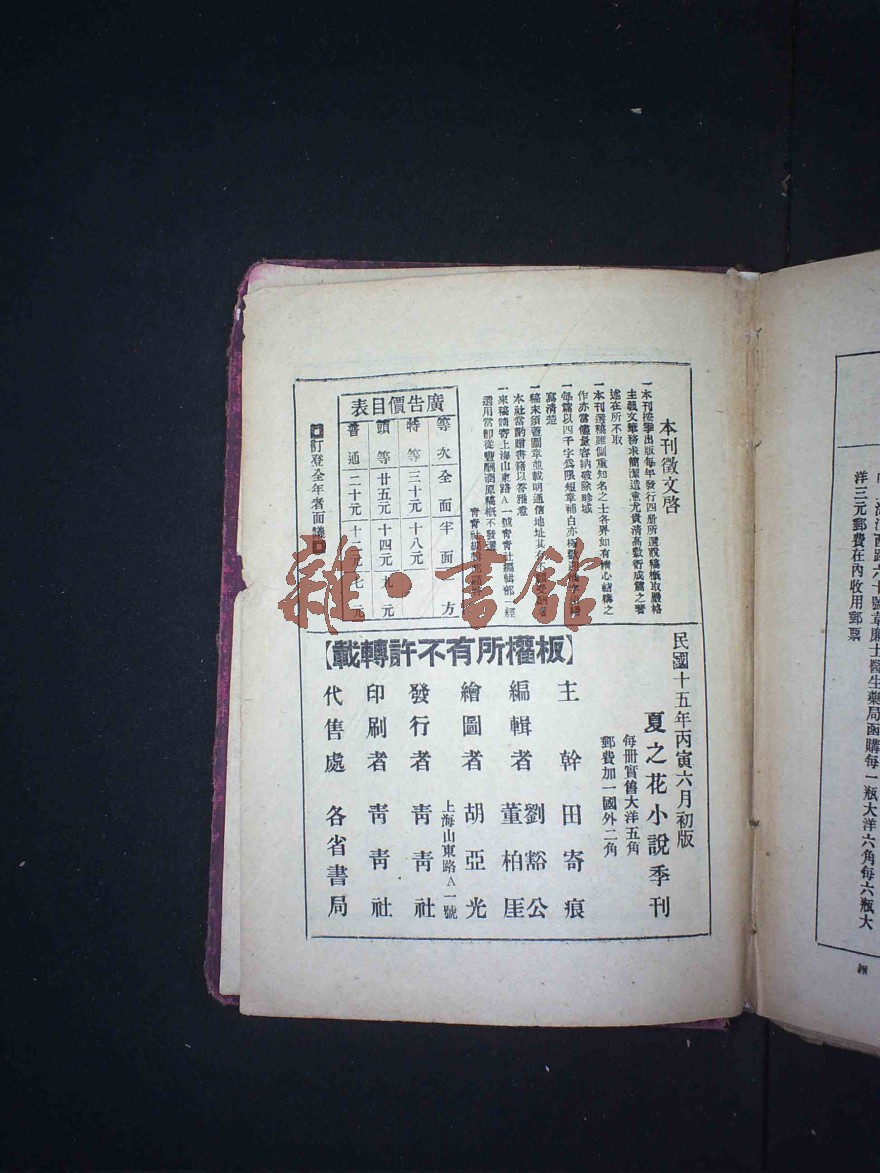 本刊徵文啓
一本刊按季出版每年發行四册所選說稿槪取嚴格
主義文筆務求簡潔造意尤貴清高敷衍成篇之著
述在所不取
一本刊選稿雖側重知名之士各界如有精心結構之
作亦當儘量容納破除畛域
一每篇以四千字爲限短章補白亦極歡迎
寫清楚
一稿末須蓋圖章並載明通信地址其有不願受酬者
本社當酌贈書籍以答雅意
一來稿請寄上海山東路A一號靑靑社編輯部一經
選用當卽從豐酬潤原稿槪不發還
靑靑社編輯部
廣告價目表
等次 全面 半面 方
特等 三十元 十八元
頭等 廿五元 十四元 九元
普通 二十元 十二元 七元
訂登全年者面議
民國十五年丙寅六月初版
夏之花小說季刊
每冊實售大洋五角
郵費加一國外二角
【板權所有不許轉載】
主幹 田寄痕
編輯者 劉豁公
董柏厓
繪圖者 胡亞光
發行者 靑靑社
上海山東路A一號
印刷者 靑靑社
代售處 各省書局
江西路六十號韋廉士醫生藥局函購每一瓶大洋六角每六瓶大
洋三元郵費在內收用郵票
雜·書館